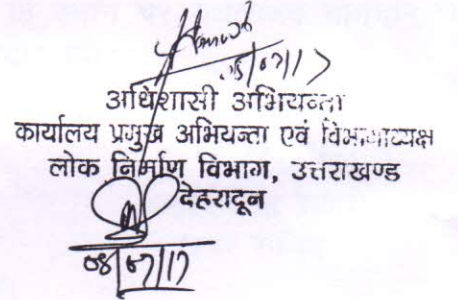 08/07/17
अधिशासी अभियन्ता
कार्यालय प्रमुख अभियन्ता एवं विभागाध्यक्ष
लोक निर्माण विभाग, उत्तराखण्ड
देहरादून
08/07/17